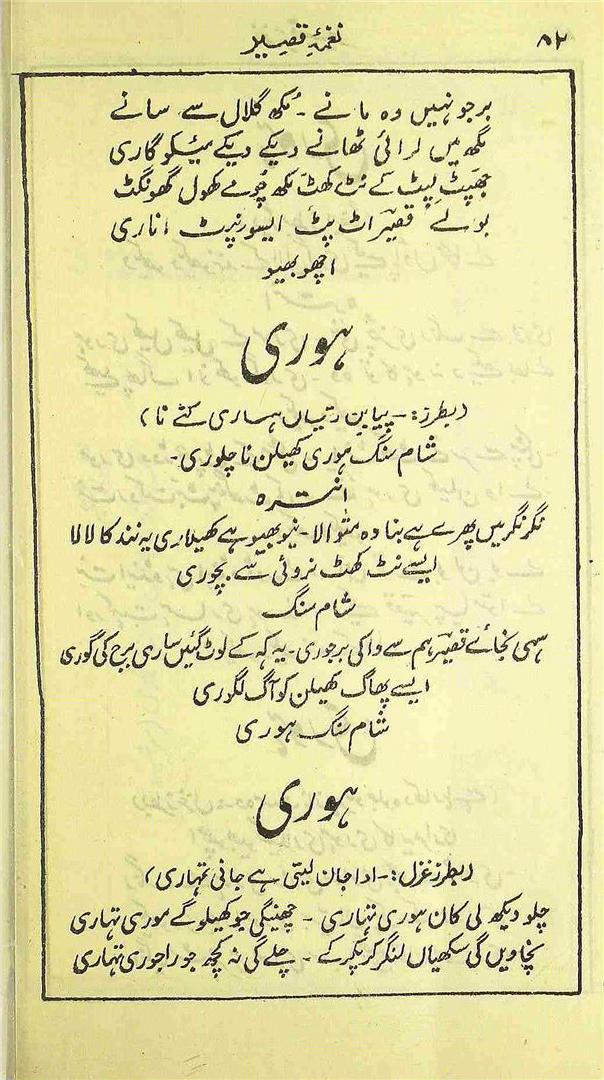 ۵۲
نغمۂ قصیر
برجو نہیں وہ مانے - مُکھ گلال سے سانے
مگھ میں لرائی ٹھانے دیکے دیکے میئکو گاری
جھپٹ لپٹ کے نٹ کھٹ مکھ چُومے کھول گھونگٹ
بولے قصیرؔ اٹ پٹ ایسو نپٹ اناری
اچھو بھیو
ہوری
(بطرز:- پیا بن رتیاں ہساری کٹے نا)
شام سنگ ہوری کھیلن نا چلوری-
انترہ
نگر نگر میں پھرے ہے بنا وہ متوالا - نیو بھیو ہے کھیلاری یہ نند کا لالا
ایسے نٹ کھٹ نروئی سے بچوری
شام سنگ
سہی بجائے قصیرؔ ہم سے واکی برجوری - یہ کہ کے لوٹ گئیں ساری برج کی گوری
ایسے پھاگ کھیلن کو آگ لگوری
شام سنگ ہوری
ہوری
(بطرز غزل:- ادا جان لیتی ہے جانی تمہاری)
چلو دیکھ لی کان ہوری تہاری - چھنیگی جو کھیلو گے موری تہاری
نچاویں گی سکھیاں لنگر کر پکر کے - چلے گی نہ کچھ جوراجوری تہاری